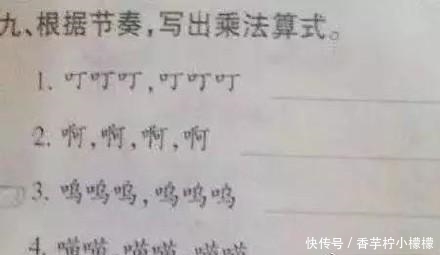 九、根据节奏,写出乘法算式。
1. 叮叮叮,叮叮叮
2. 啊,啊,啊,啊
3. 呜呜呜,呜呜呜
4. 喵喵,喵喵,喵喵
快传号/香芋柠小檬檬